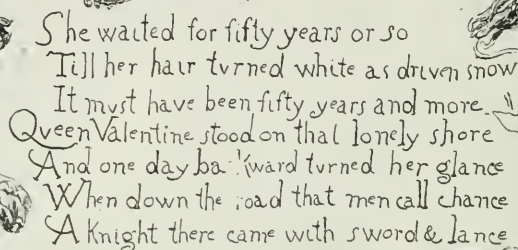 She waited for fifty years or so
Till her hair turned white as driven snow
It must have been fifty years and more.
Queen Valentine stood on that lonely shore
And one day backward turned her glance
When down the road that men call chance
A Knight there came with sword & lance